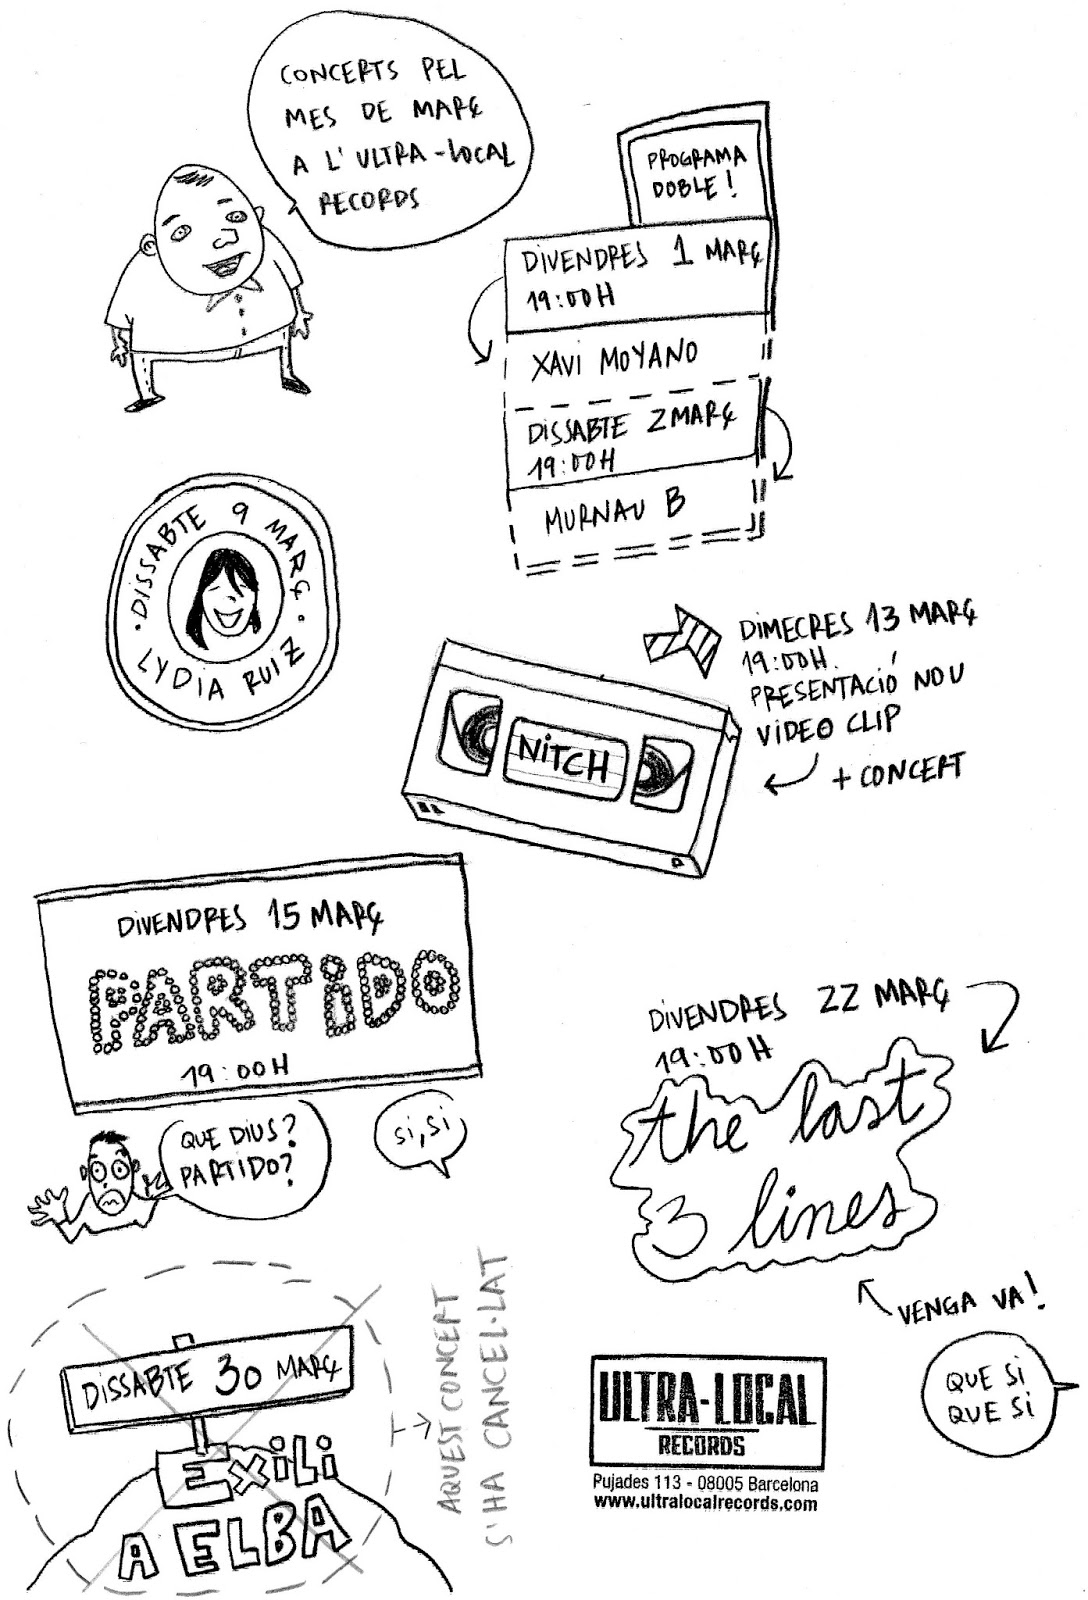 CONCERTS PEL
MES DE MARÇ
A L'ULTRA-LOCAL
RECORDS
PROGRAMA
DOBLE!
DIVENDRES 1 MARÇ
19:00H
XAVI MOYANO
DISSABTE 2 MARÇ
19:00H
MURNAU B
·DISSABTE 9 MARÇ·
LYDIA RUIZ
DIMECRES 13 MARÇ
19:00H.
PRESENTACIÓ NOU
VIDEO CLIP
+ CONCERT
NITCH
DIVENDRES 15 MARÇ
PARTIDO
19:00H
QUE DIUS?
PARTIDO?
SI, SI
DIVENDRES 22 MARÇ
19:00H
the last
3 lines
VENGA VA!
QUE SI
QUE SI
DISSABTE 30 MARÇ
EXILI
A ELBA
AQUEST CONCERT
S'HA CANCEL·LAT
ULTRA-LOCAL
RECORDS
Pujades 113 - 08005 Barcelona
www.ultralocalrecords.com